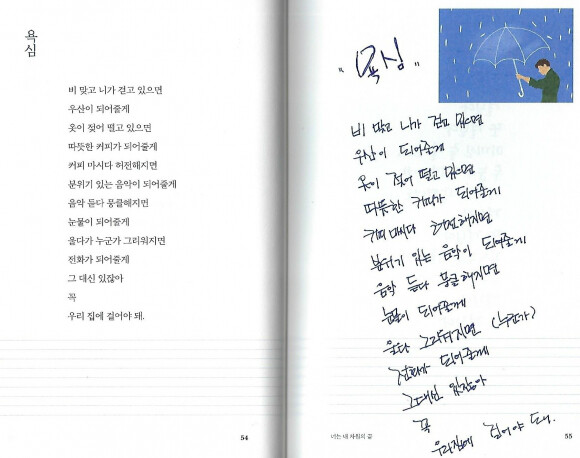 욕심
비 맞고 니가 걷고 있으면
우산이 되어줄게
옷이 젖어 떨고 있으면
따듯한 커피가 되어줄게
커피 마시다 허전해지면
분위기 있는 음악이 되어줄게
음악 듣다 뭉클해지면
눈물이 되어줄게
울다가 누군가 그리워지면
전화가 되어줄게
그 대신 있잖아
꼭
우리 집에 걸어야 돼.
54
" 욕심 "
비 맞고 니가 걷고 있으면
우산이 되어줄게
옷이 젖어 떨고 있으면
따뜻한 커피가 되어줄게
커피 마시다 허전해지면
분위기 있는 음악이 되어줄게
음악 듣다 뭉클해지면
눈물이 되어줄게
울다 그리워지면 (누군가)
전화가 되어줄게
그대신 있잖아
꼭
우리집에 걸어야 돼.
너는 내 차원의 끝
55